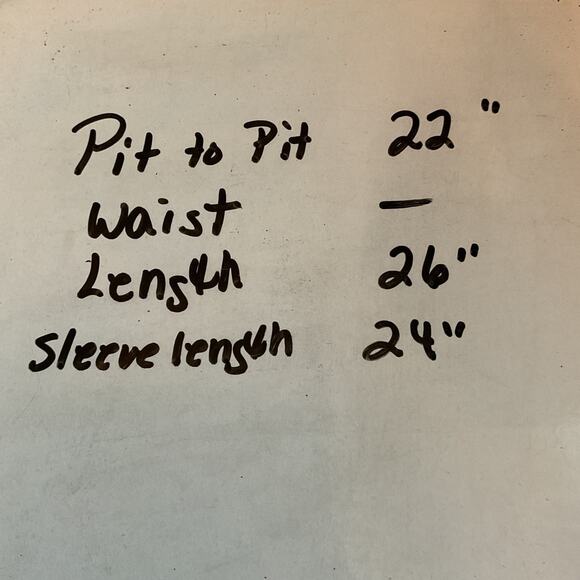 Pit to Pit 22"
Waist —
Length 26"
Sleeve length 24"